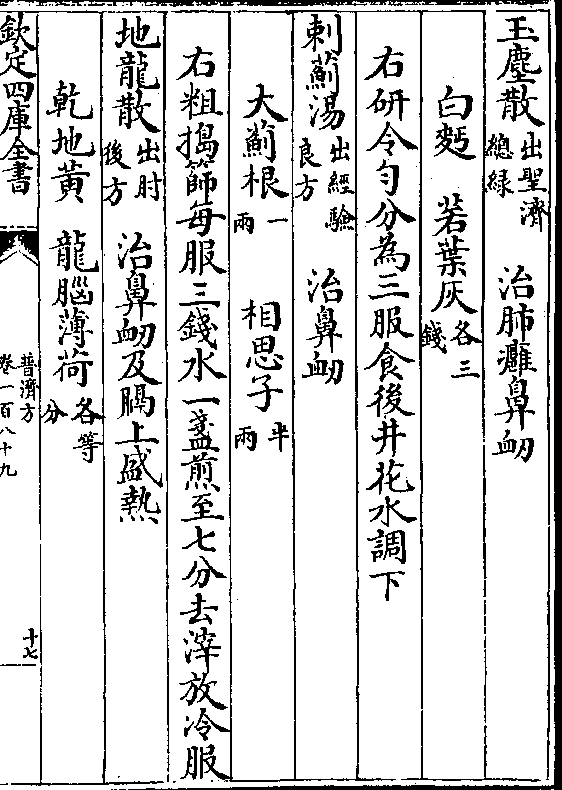 玉塵散出聖濟總綠 治肺癰鼻衂
白麫 若葉灰各三錢
右研令勻分為三服食後井花水調下
刺薊湯出經驗良方 治鼻衂
大薊根一兩 相思子半兩
右粗搗篩每服三錢水一盞煎至七分去滓放冷服
地龍散出肘後方 治鼻衂及膈上盛熱
乾地黃 龍腦薄荷各等分
欽定四庫全書 普濟方卷一百八十九 十七